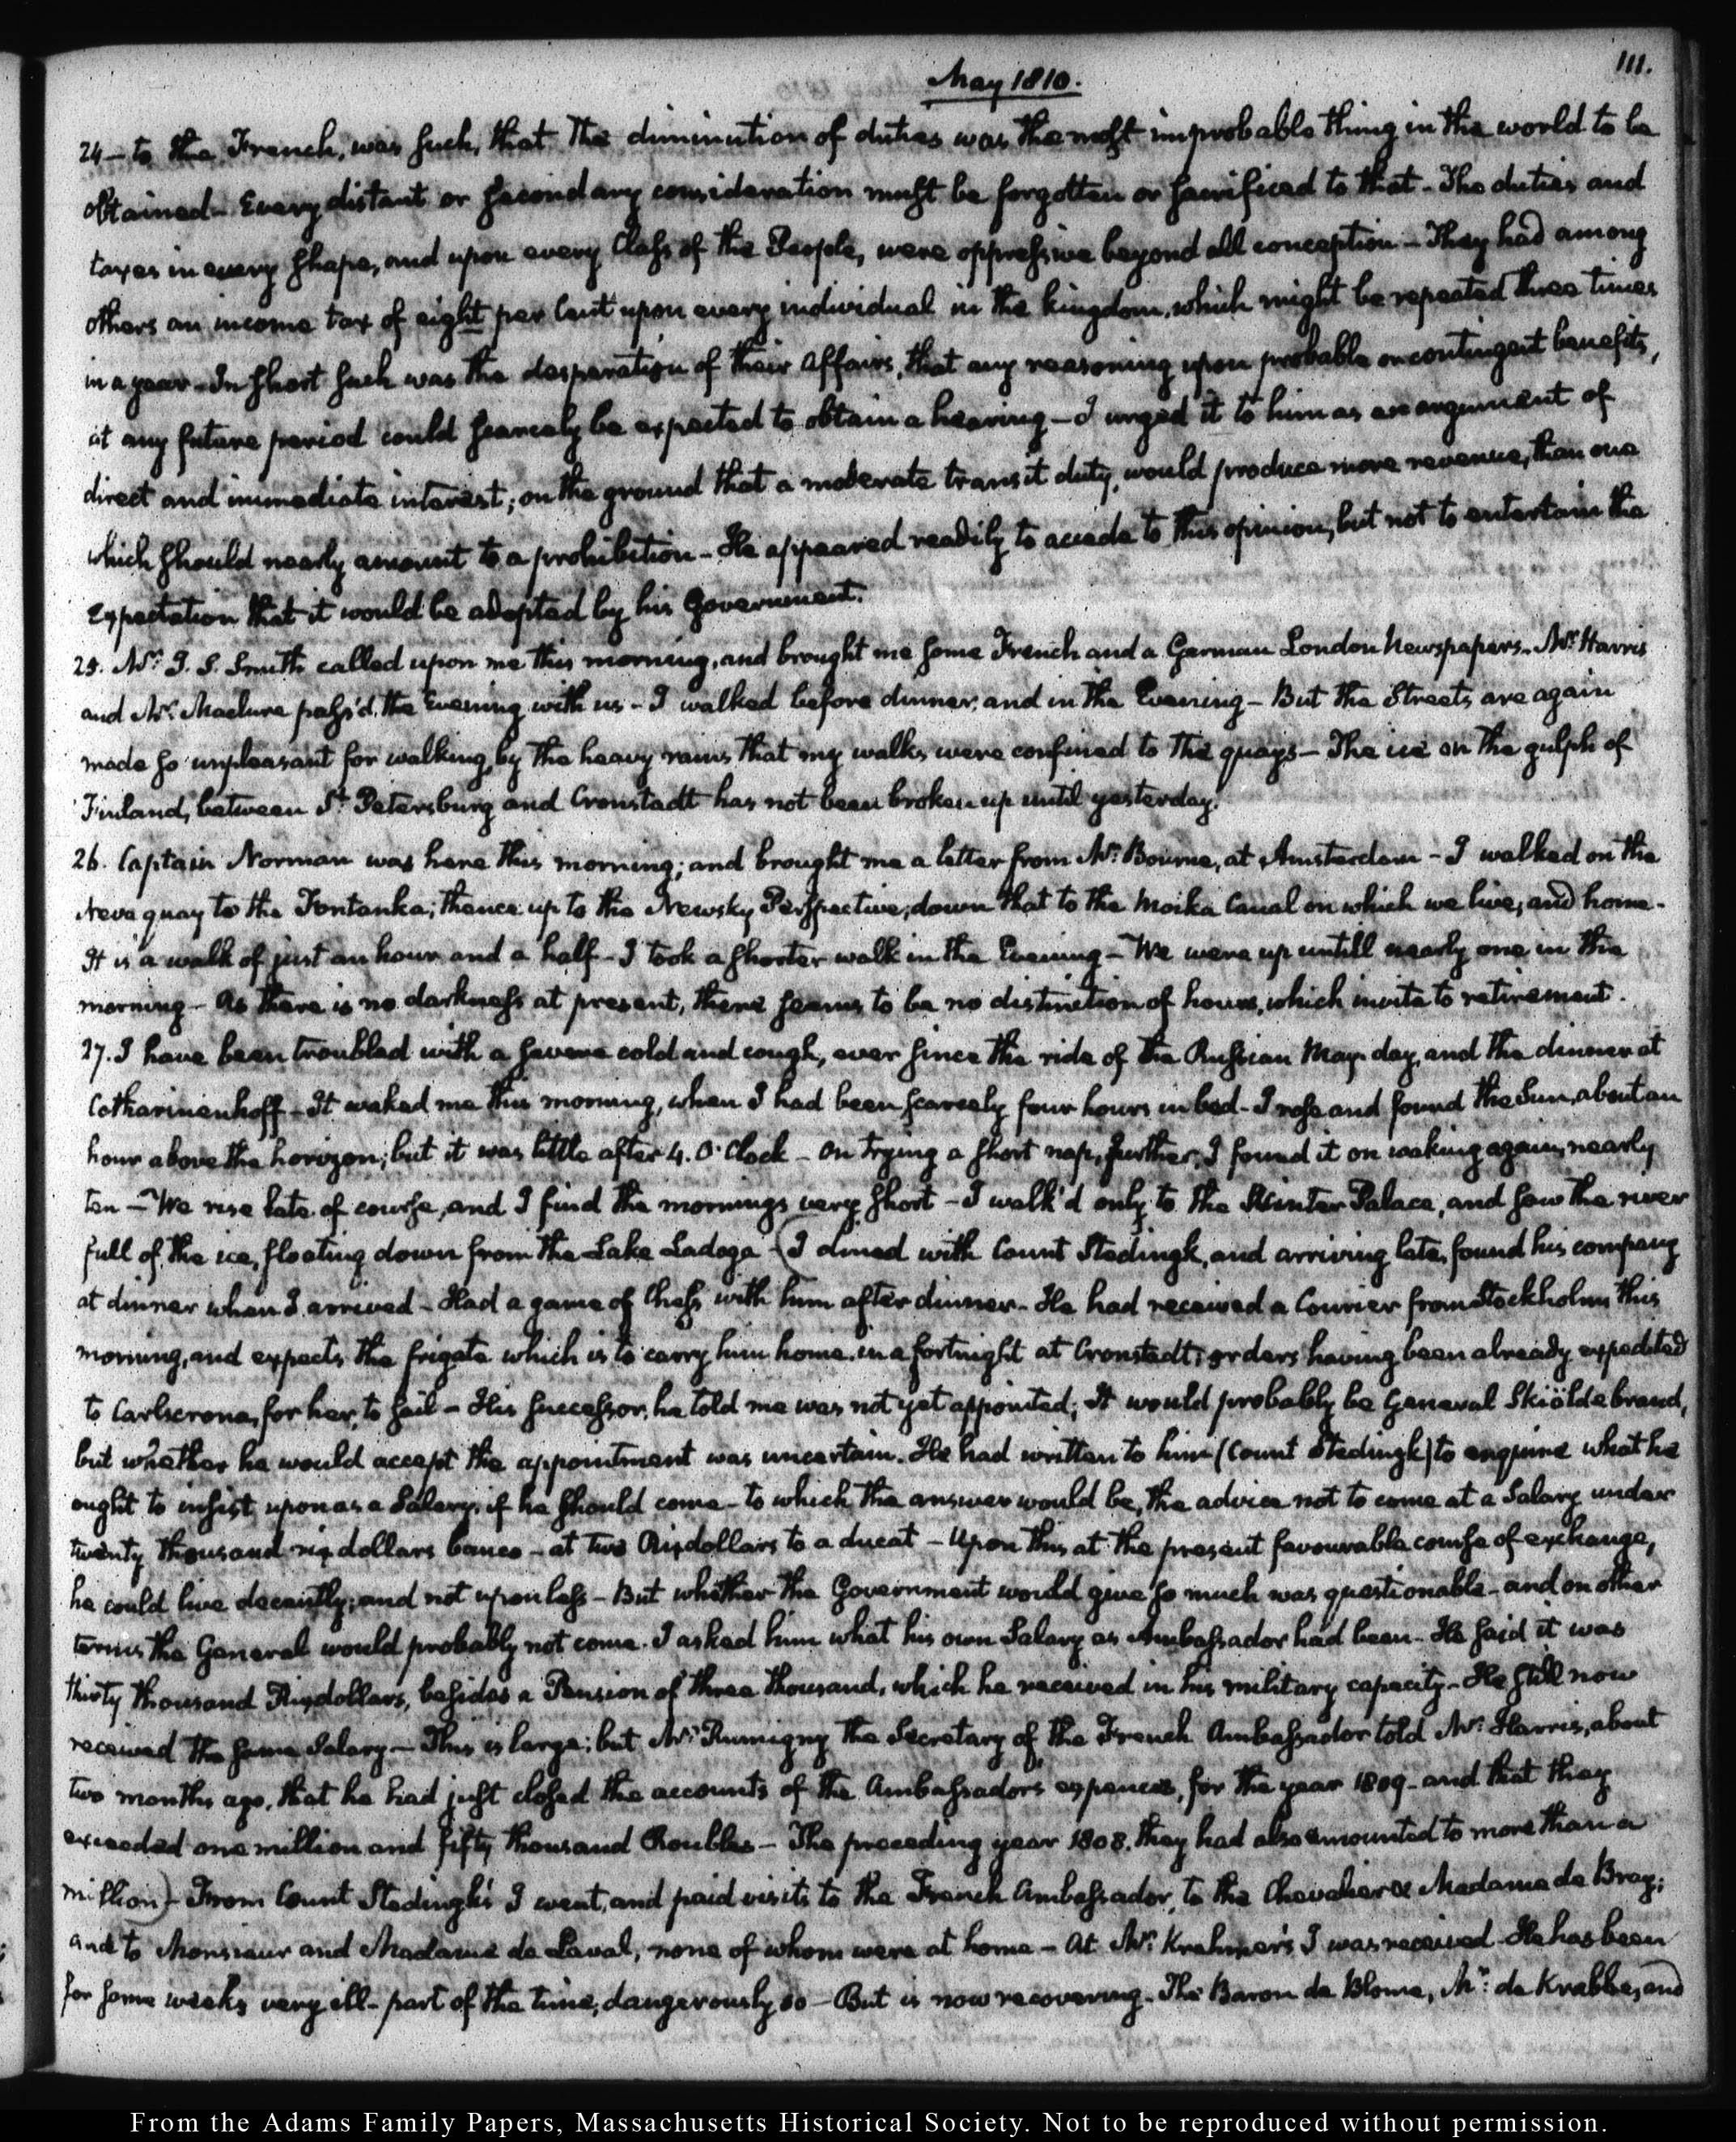 111.
May 1810.
24 – to the French, was such, that the diminution of duties was the most improbable thing in the world to be
obtained – Every distant or secondary consideration must be forgotten or sacrificed to that – The duties and
taxes in every shape, and upon every Class of the People, were oppressive beyond all conception – They had among
others an income tax of eight per Cent upon every individual in the kingdom, which might be repeated three times
in a year – In short such was the desperation of their affairs, that any reasoning upon probable or contingent benefits,
at any future period could scarcely be expected to obtain a hearing – I urged it to him as an argument of
direct and immediate interest; on the ground that a moderate transit duty, would produce more revenue, than one
which should nearly amount to a prohibition – He appeared readily to accede to this opinion, but not to entertain the
Expectation that it would be adopted by his Government.
25. Mr. J. S. Smith called upon me this morning, and brought me some French and a German London Newspapers. Mr. Harris
and Mr. Maclure pass'd the Evening with us – I walked before dinner, and in the Evening – But the Streets are again
made so unpleasant for walking, by the heavy rains that my walks were confined to the quays – The ice on the gulph of
Finland, between St. Petersburg and Cronstadt has not been broken up until yesterday.
26. Captain Norman was here this morning; and brought me a letter from Mr. Bourne, at Amsterdam – I walked on the
Neva quay to the Fontanka; thence up to the Newsky Perspective; down that to the Moika Canal on which we live, and home –
It is a walk of just an hour and a half – I took a shorter walk in the Evening – We were up untill nearly one in the
morning – As there is no darkness at present, there seems to be no distinction of hours, which invite to retirement.
27. I have been troubled with a severe cold and cough, ever since the ride of the Russian May-day, and the dinner at
Catharinenhoff – It waked me this morning, when I had been scarcely four hours in bed – I rose and found the Sun, about an
hour above the horizon; but it was little after 4. O'Clock – On trying a short nap, further, I found it on waking again, nearly
ten – We rise late of course, and I find the mornings very short – I walk'd only to the Winter Palace, and saw the river
full of the ice, floating down from the Lake Ladoga – (I dined with Count Stedingk, and arriving late, found his company
at dinner when I arrived – Had a game of Chess with him after dinner – He had received a Courier from Stockholm this
morning, and expects the frigate which is to carry him home in a fortnight at Cronstadt; orders having been already expedited
to Carlscrona, for her, to sail – His successor, he told me was not yet appointed; It would probably be General Skiöldebrand,
but whether he would accept the appointment was uncertain. He had written to him (Count Stedingk) to enquire what he
ought to insist upon as a Salary, if he should come – to which the answer would be, the advice not to come at a Salary under
twenty thousand rixdollars banco – at two Rixdollars to a ducat – Upon this at the present favourable course of exchange,
he could live decently; and not upon less – But whether the Government would give so much was questionable – and on other
terms the General would probably not come. I asked him what his own Salary as Ambassador had been – He said it was
thirty thousand Rixdollars, besides a Pension of three thousand, which he received in his military capacity – He still now
received the same Salary – This is large; but Mr. Rumigny the Secretary of the French Ambassador told Mr. Harris, about
two months ago, that he had just closed the accounts of the Ambassadors expences, for the year 1809 – and that they
exceeded one million and fifty thousand Roubles – The preceding year 1808. they had also amounted to more than a
million) – From Count Stedingk's I went, and paid visits to the French Ambassador, to the Chevalier & Madame de Bray;
and to Monsieur and Madame de Laval, none of whom were at home – At Mr. Krehmer's I was received – He has been
for some weeks very ill – part of the time, dangerously so – But is now recovering – The Baron de Blome, Mr. de Krabbe, and
From the Adams Family Papers, Massachusetts Historical Society. Not to be reproduced without permission.